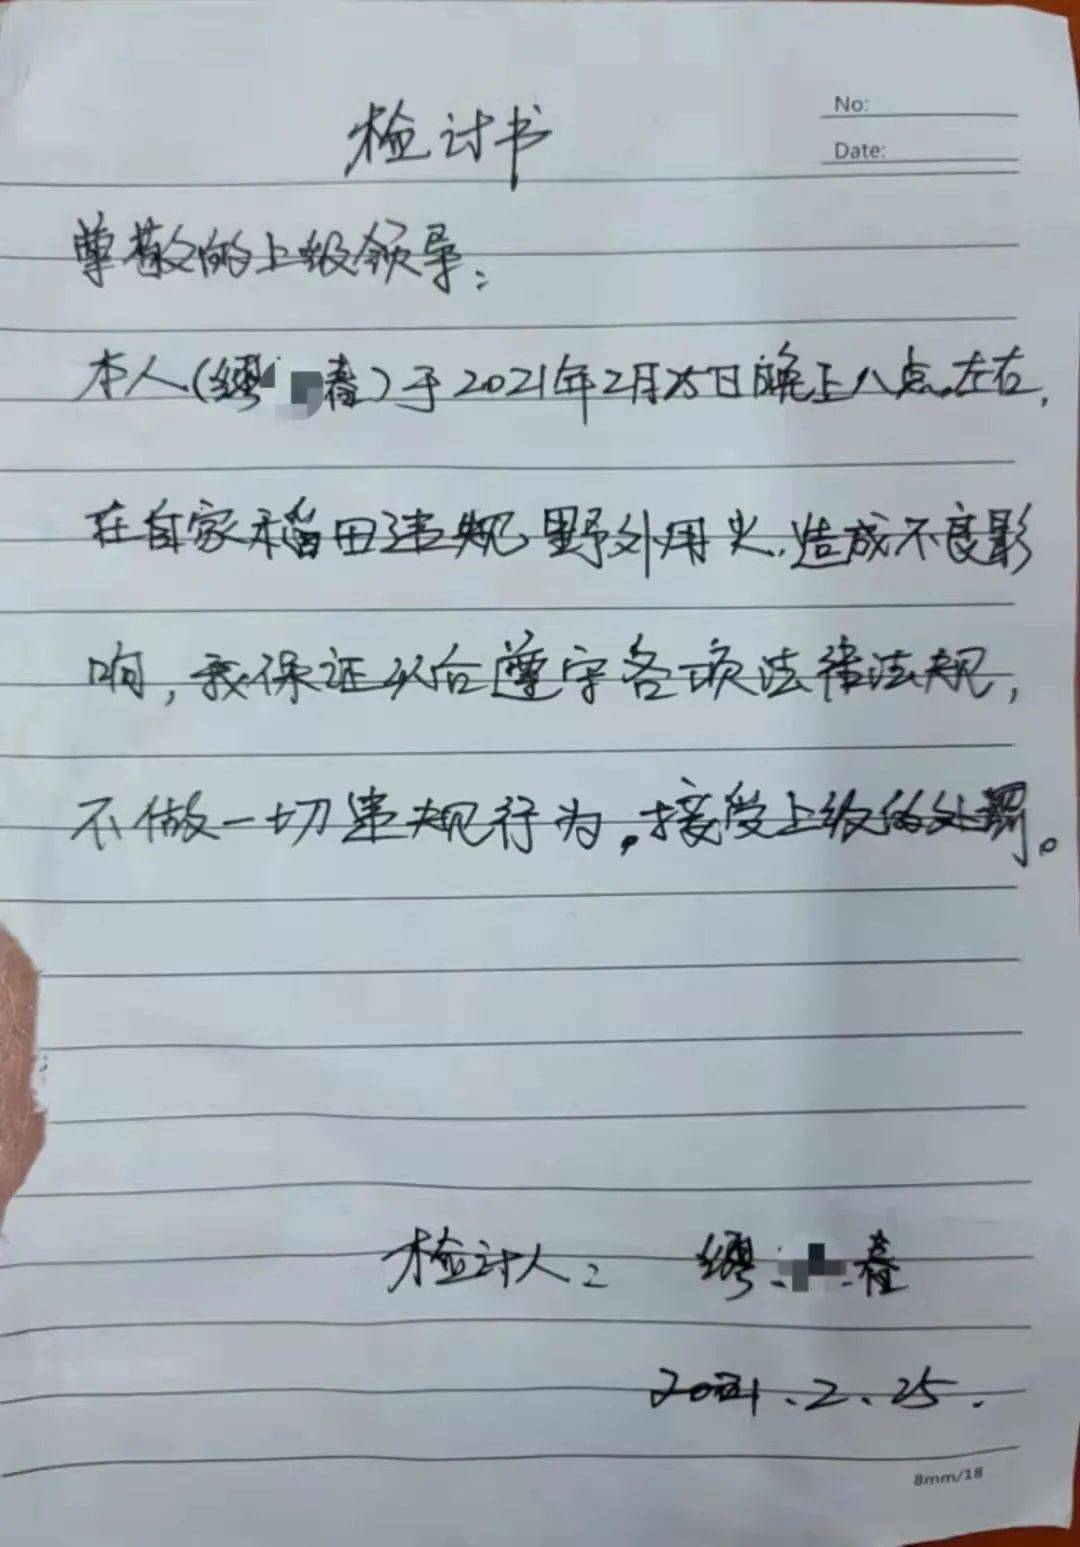 No:
Date:
检讨书
尊敬的上级领导:
本人(缪春)于2021年2月25日晚上八点左右,
在自家稻田违规野外用火,造成不良影
响,我保证以后遵守各项法律法规,
不做一切违规行为,接受上级的处罚。
检讨人: 缪春
2021.2.25.
8mm/18